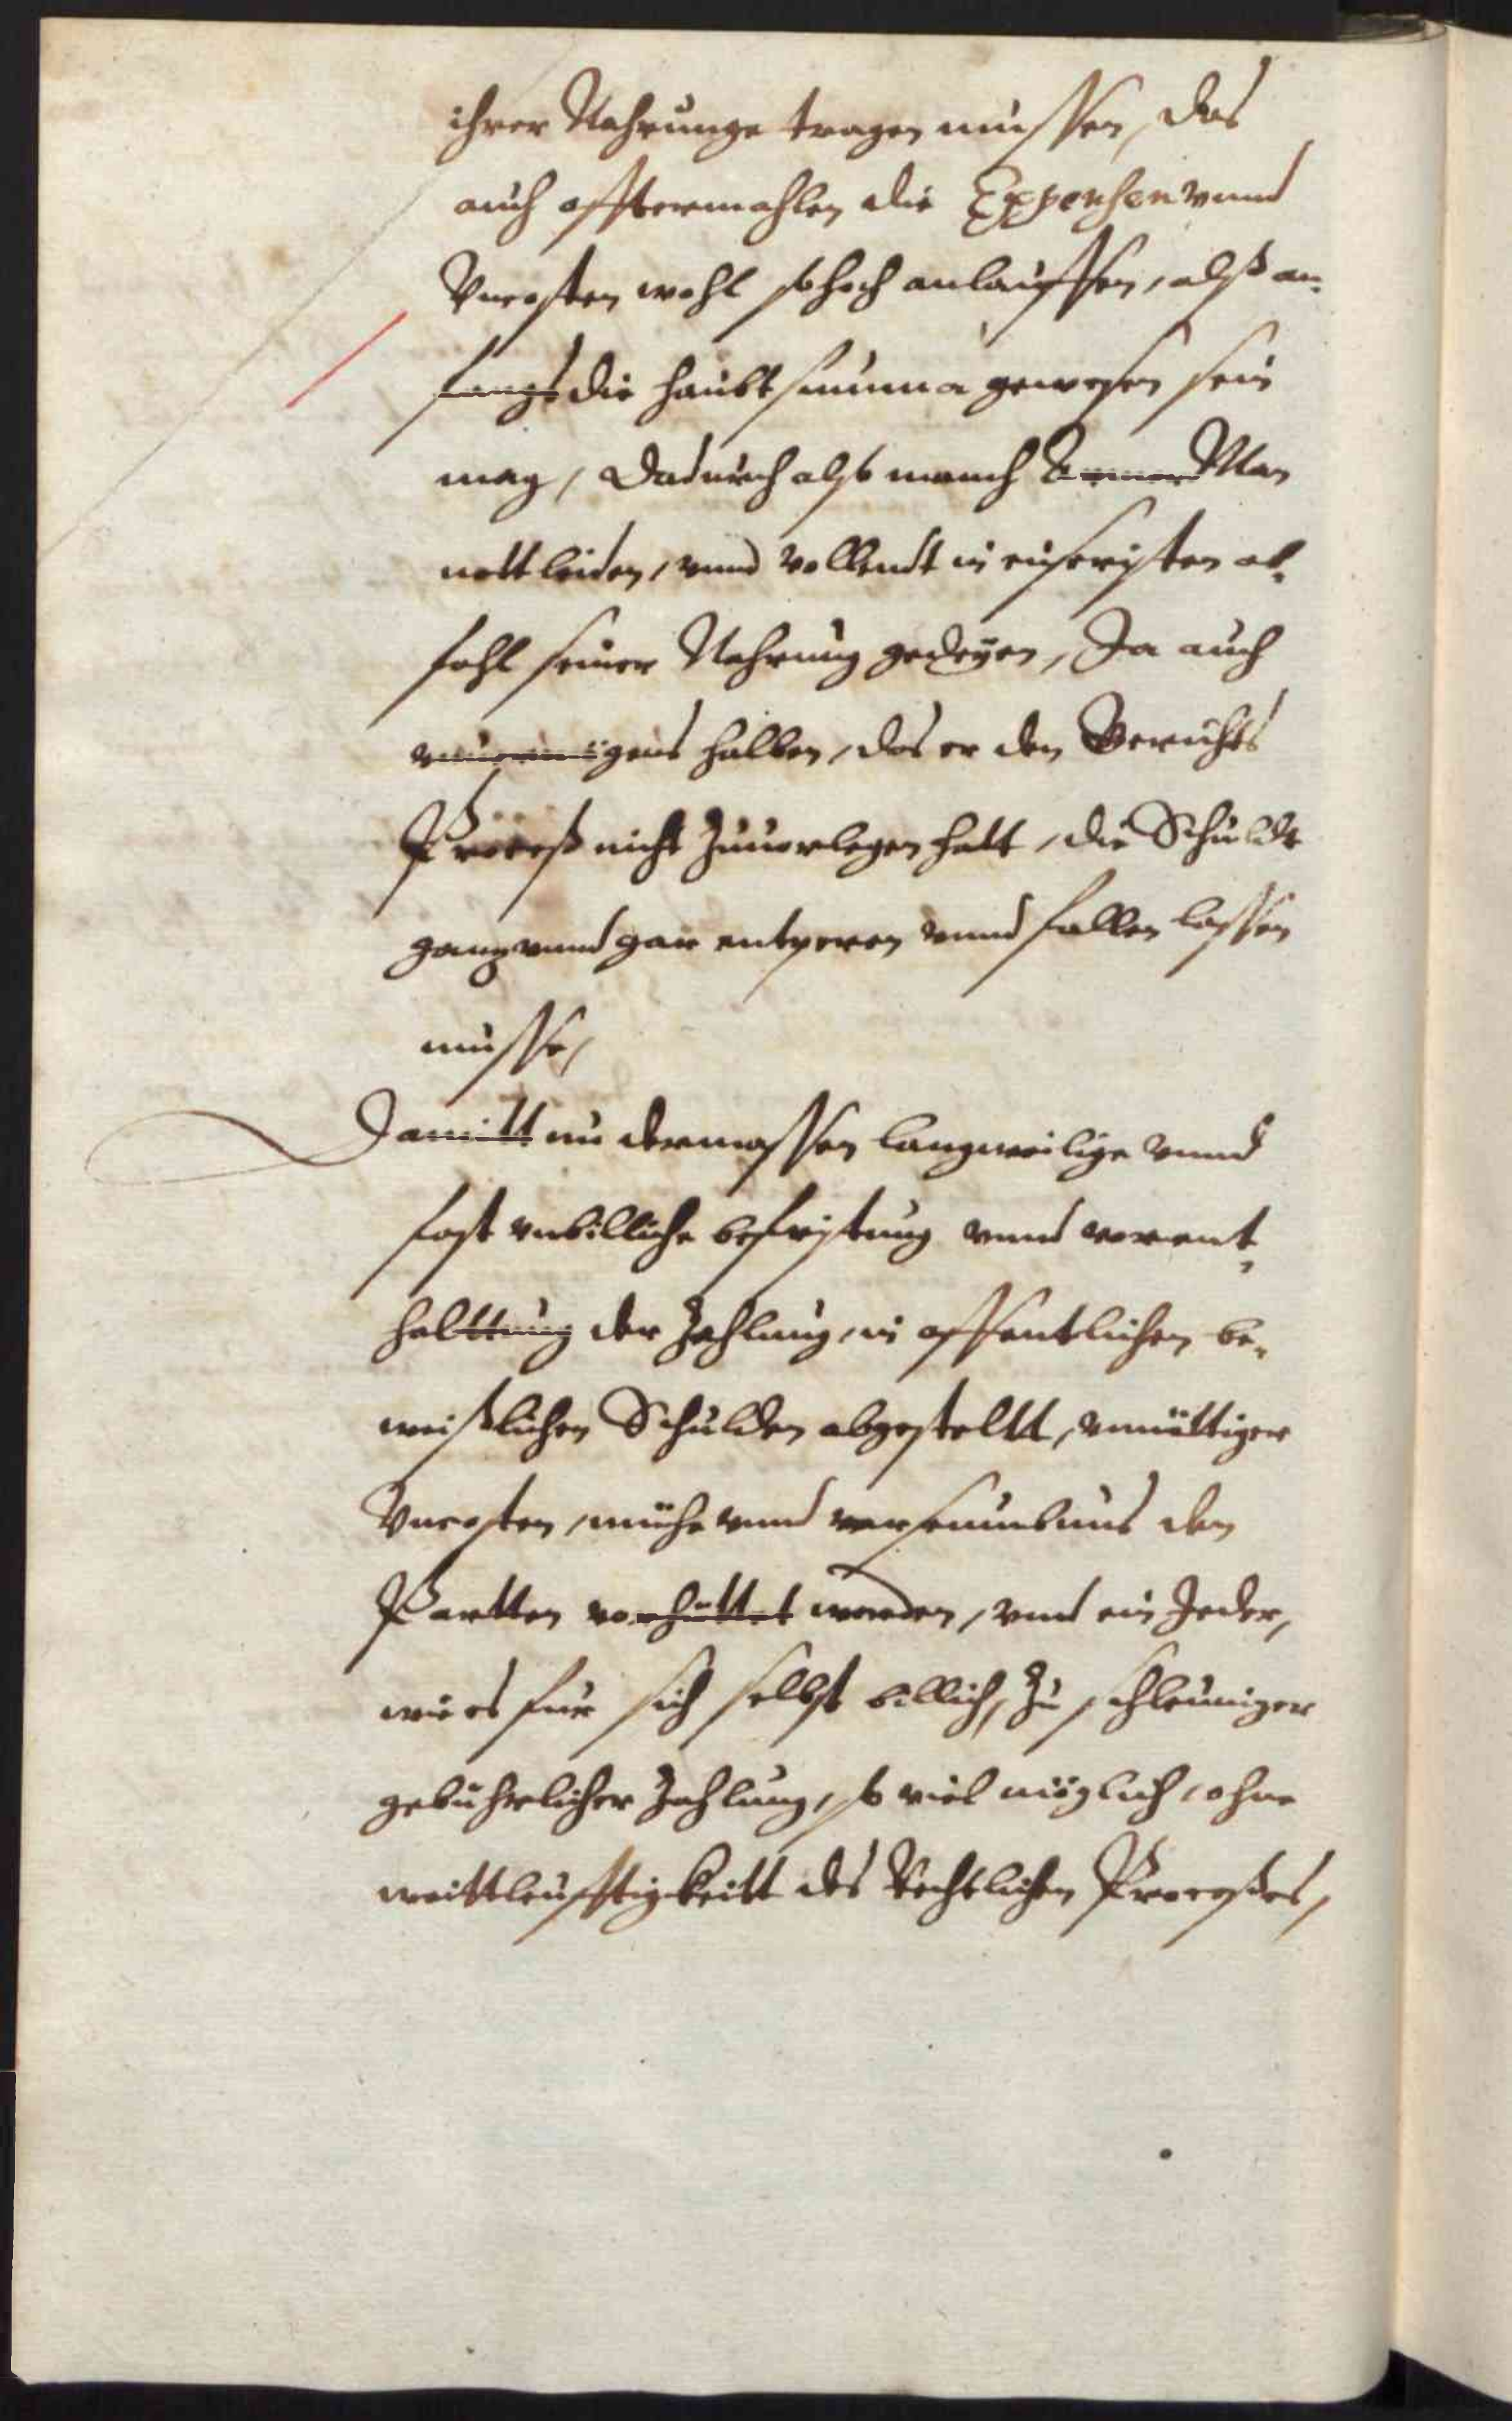 ihrer Nahrunge tragen mussen, das
auch offtermahlen die Expensen vnnd
Vncosten wohl so hoch anlauffen, alß an¬
fangs die haubt summa gewesen sein
mag, Dadurch also manch Armer Man
nott leiden, vnnd vollendt in eusersten ab¬
fahl seiner Nahrung gedeyen, Ja auch
vnuermögens halben, das er den Gerichts
Proceß nicht zuuerlegen hatt, die Schuldt
gantz vnnd gar entperen vnnd fallen lassen
musse,
Damitt nu dermassen langweilige vnnd
fast vnbilliche befristung vnnd vorent¬
halttung der Zahlung, in offentlichen be¬
weißlichen Schulden abgestellt, vnnöttiger
Vncosten, mühe vnnd verseumbnus den
Partten vorhüttet werden, vnnd ein Jeder,
wie es fur sich selbst billich, zu schleuniger
gebuhrlicher Zahlung, so viel möglich, ohne
weittleufftigkeitt des Rechtlichen Processes,